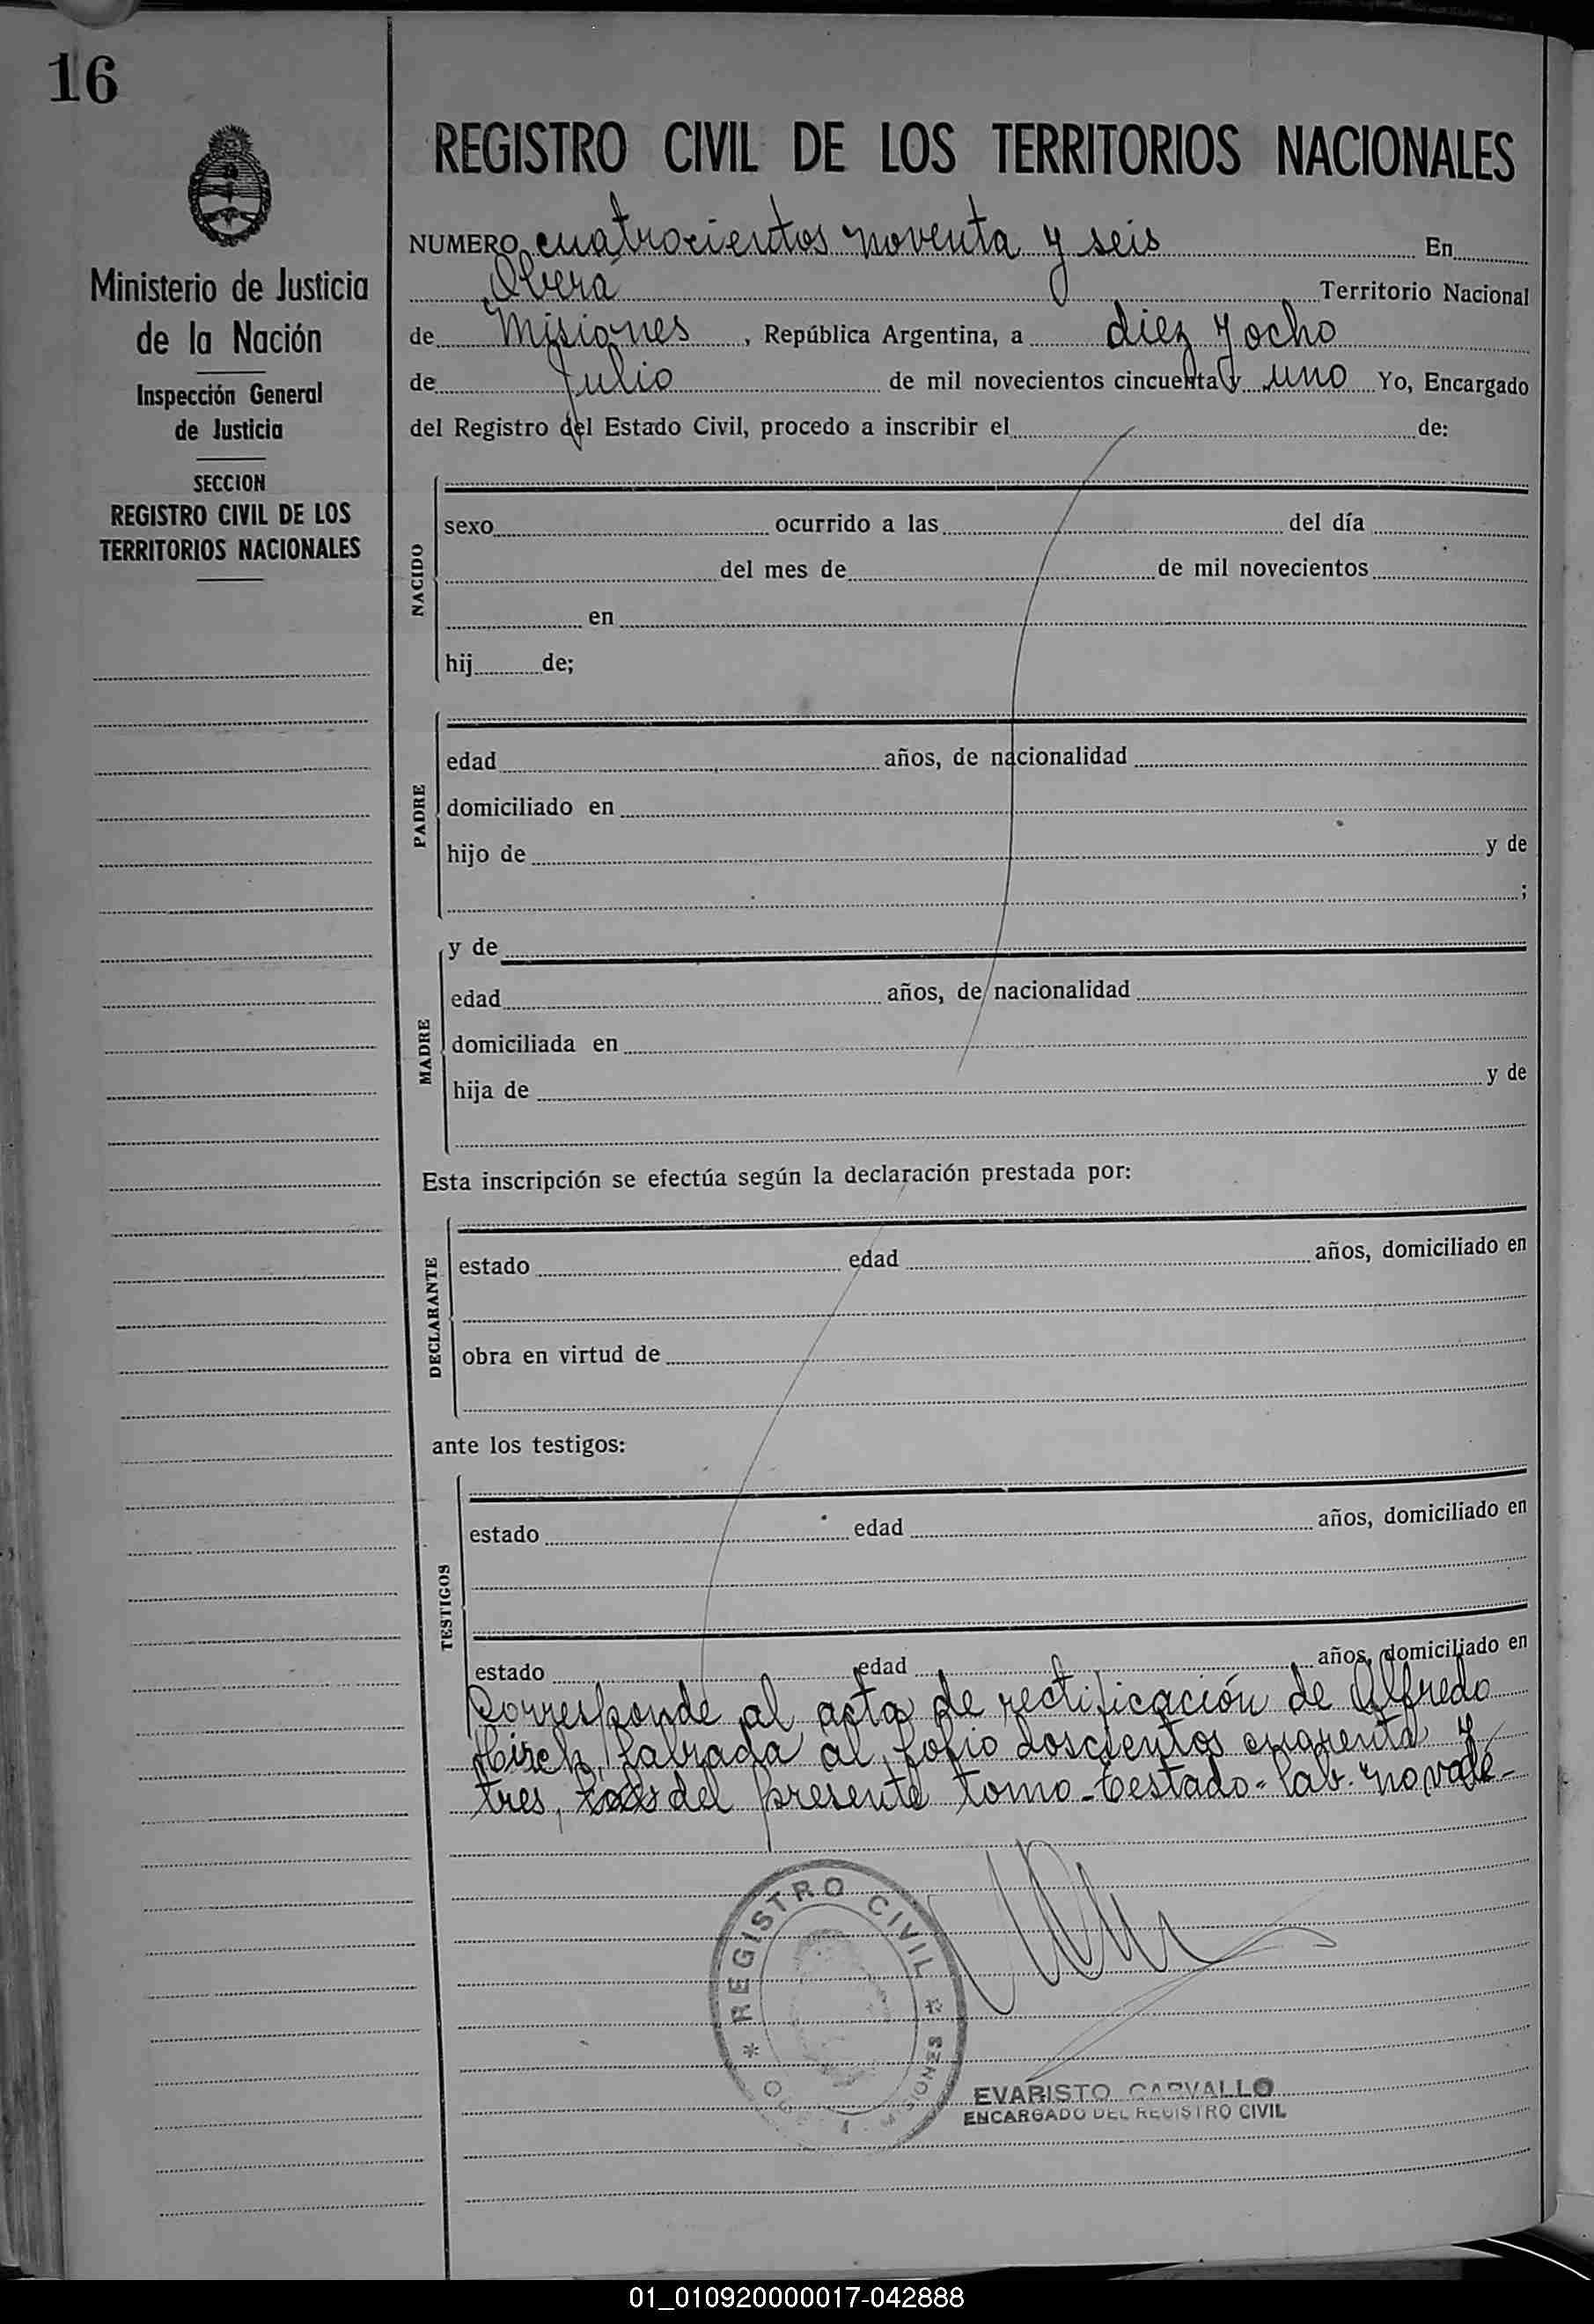 16
Ministerio de Justicia
de la Nación
Inspección General
de Justicia
SECCION
REGISTRO CIVIL DE LOS
TERRITORIOS NACIONALES
REGISTRO CIVIL DE LOS TERRITORIOS NACIONALES
NUMERO cuatrocientos noventa y seis En
Oberá Territorio Nacional
de Misiones, República Argentina, a diez y ocho
de Julio de mil novecientos cincuenta y uno Yo, Encargado
del Registro del Estado Civil, procedo a inscribir el de:
NACIDO
sexo ocurrido a las del día
del mes de de mil novecientos
en
hij de;
PADRE
edad años, de nacionalidad
domiciliado en
hijo de y de
;
MADRE
y de
edad años, de nacionalidad
domiciliada en
hija de y de
Esta inscripción se efectúa según la declaración prestada por:
DECLARANTE
estado edad años, domiciliado en
obra en virtud de
ante los testigos:
TESTIGOS
estado edad años, domiciliado en
estado edad años, domiciliado en
Corresponde al acta de rectificación de Alfredo
Hirch, labrada al folio doscientos cuarenta y
tres, del presente tomo - Testado = lab. no vale -
REGISTRO CIVIL
EVARISTO CARVALLO
ENCARGADO DEL REGISTRO CIVIL
01_010920000017-042888